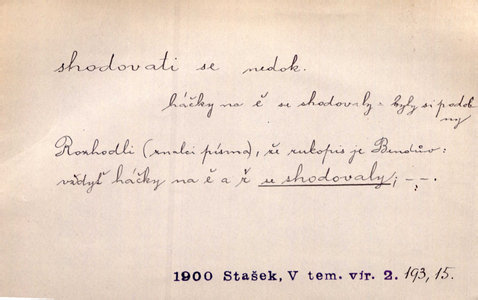 shodovati se nedok.
háčky na ě se shodovaly = byly si podob
ny
Rozhodli (znalci písma), že rukopis je Bendův:
vždyť háčky na ě a ř se shodovaly; – – .
1900 Stašek, V tem. vír. 2. 193, 15.